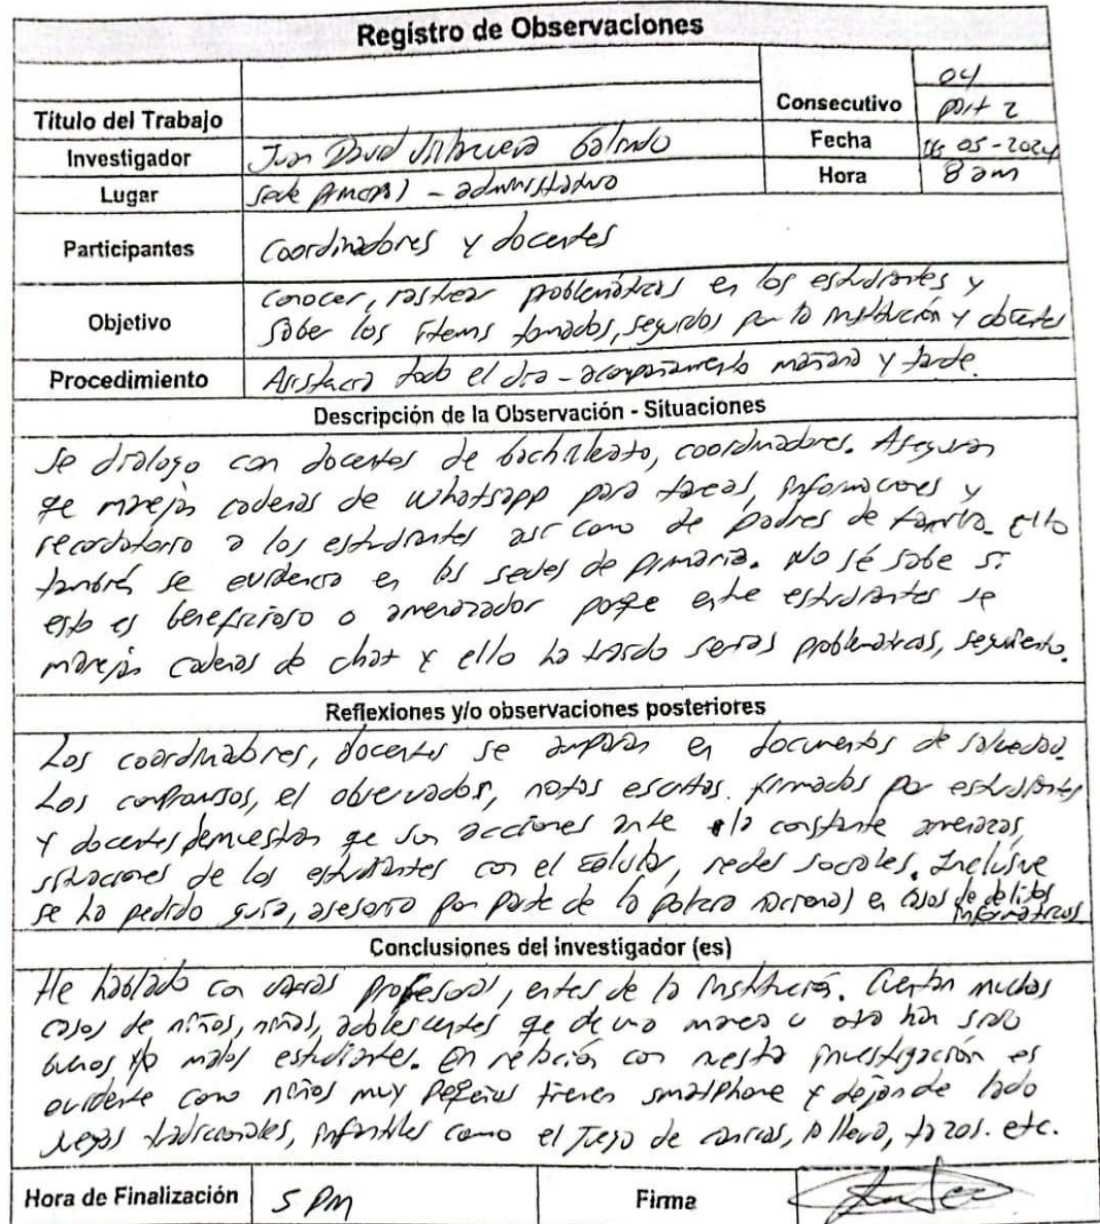 Registro de Observaciones
04
Título del Trabajo Consecutivo part 2
Investigador Juan David Galindo Fecha 05-2024
Lugar Sede principal - administrativo Hora 8 am
Participantes Coordinadores y docentes
Objetivo conocer, rastrear problemáticas en los estudiantes y
saber los ítems tomados, seguidos por la institución y docentes
Procedimiento Asistencia todo el día - acompañamiento mañana y tarde.
Descripción de la Observación - Situaciones
Se dialogo con docentes de bachillerato, coordinadores. Aseguran
qe manejan cadenas de whatsapp para tareas, informaciones y
recordatorio a los estudiantes así como de padres de familia. Ello
también se evidencia en las sedes de primaria. No sé sabe si
esto es beneficioso o amenazador porqe entre estudiantes se
manejan cadenas de chat y ello ha traido serias problemáticas, seguimiento.
Reflexiones y/o observaciones posteriores
Los coordinadores, docentes se amparan en documentos de salvedad.
Los compromisos, el observador, notas escritas. firmados por estudiantes
y docentes demuestran qe son acciones ante la constante amenazas,
situaciones de los estudiantes con el celular, redes sociales. Inclusive
se ha pedido guía, asesoria por parte de la policia nacional en casos de delitos
informáticos
Conclusiones del investigador (es)
He hablado con varias profesoras, entes de la institución. Cuentan muchos
casos de niños, niñas, adolescentes qe de una manera u otra han sido
buenos y/o malos estudiantes. En relación con nuestra investigación es
evidente como niños muy peqeños tienen smartphone y dejan de lado
juegos tradicionales, infantiles como el juego de canicas, la lleva, tazos. etc.
Hora de Finalización 5 PM Firma